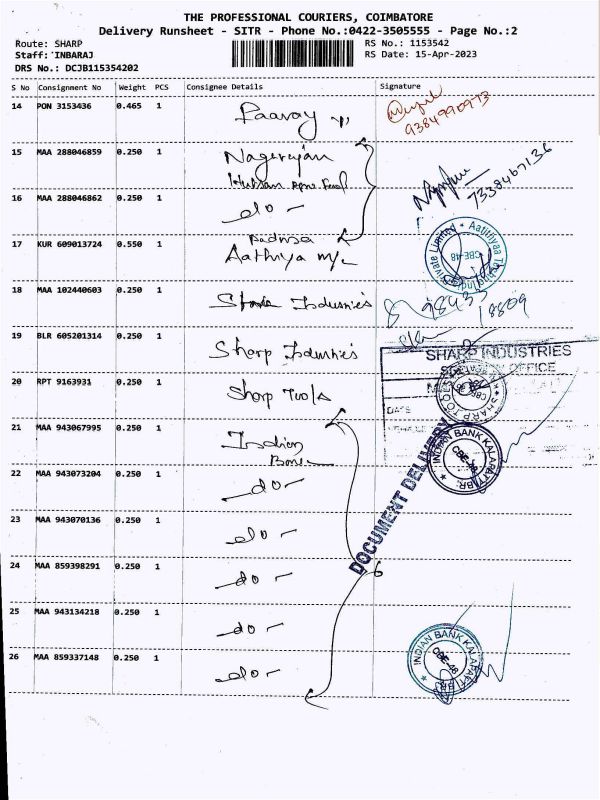 THE PROFESSIONAL COURIERS, COIMBATORE
Delivery Runsheet - SITR - Phone No.:0422-3505555 - Page No.:2
Route: SHARP
Staff: INBARAJ
DRS No.: DCJB115354202
RS No.: 1153542
RS Date: 15-Apr-2023
S No Consignment No Weight PCS Consignee Details Signature
14 PON 3153436 0.465 1 Paavay
9384990973
15 MAA 288046859 0.250 1 Nagarajan
7338467136
16 MAA 288046862 0.250 1 do -
17 KUR 609013724 0.550 1 Aathiya
Private Limited * Aatithyaa
CBE-48
18 MAA 102440603 0.250 1 Industries
98433
18809
19 BLR 605201314 0.250 1 Sharp Industries
SHARP INDUSTRIES
OFFICE
DATE
20 RPT 9163931 0.250 1 Sharp Tools
SHARP TOOLS
21 MAA 943067995 0.250 1 Indian
Bank
INDIAN BANK KALAPATTI BR.
CBE-48
DOCUMENT DELIVERY
22 MAA 943073204 0.250 1 do -
23 MAA 943070136 0.250 1 do -
24 MAA 859398291 0.250 1 do -
6
25 MAA 943134218 0.250 1 do -
26 MAA 859337148 0.250 1 do -
INDIAN BANK KALAPATTI BR.
CBE-48